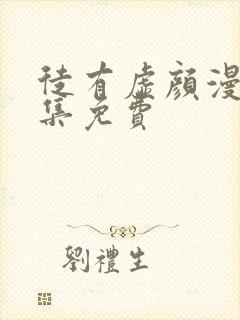 徒有虛顏漫
集免費
劉禮生